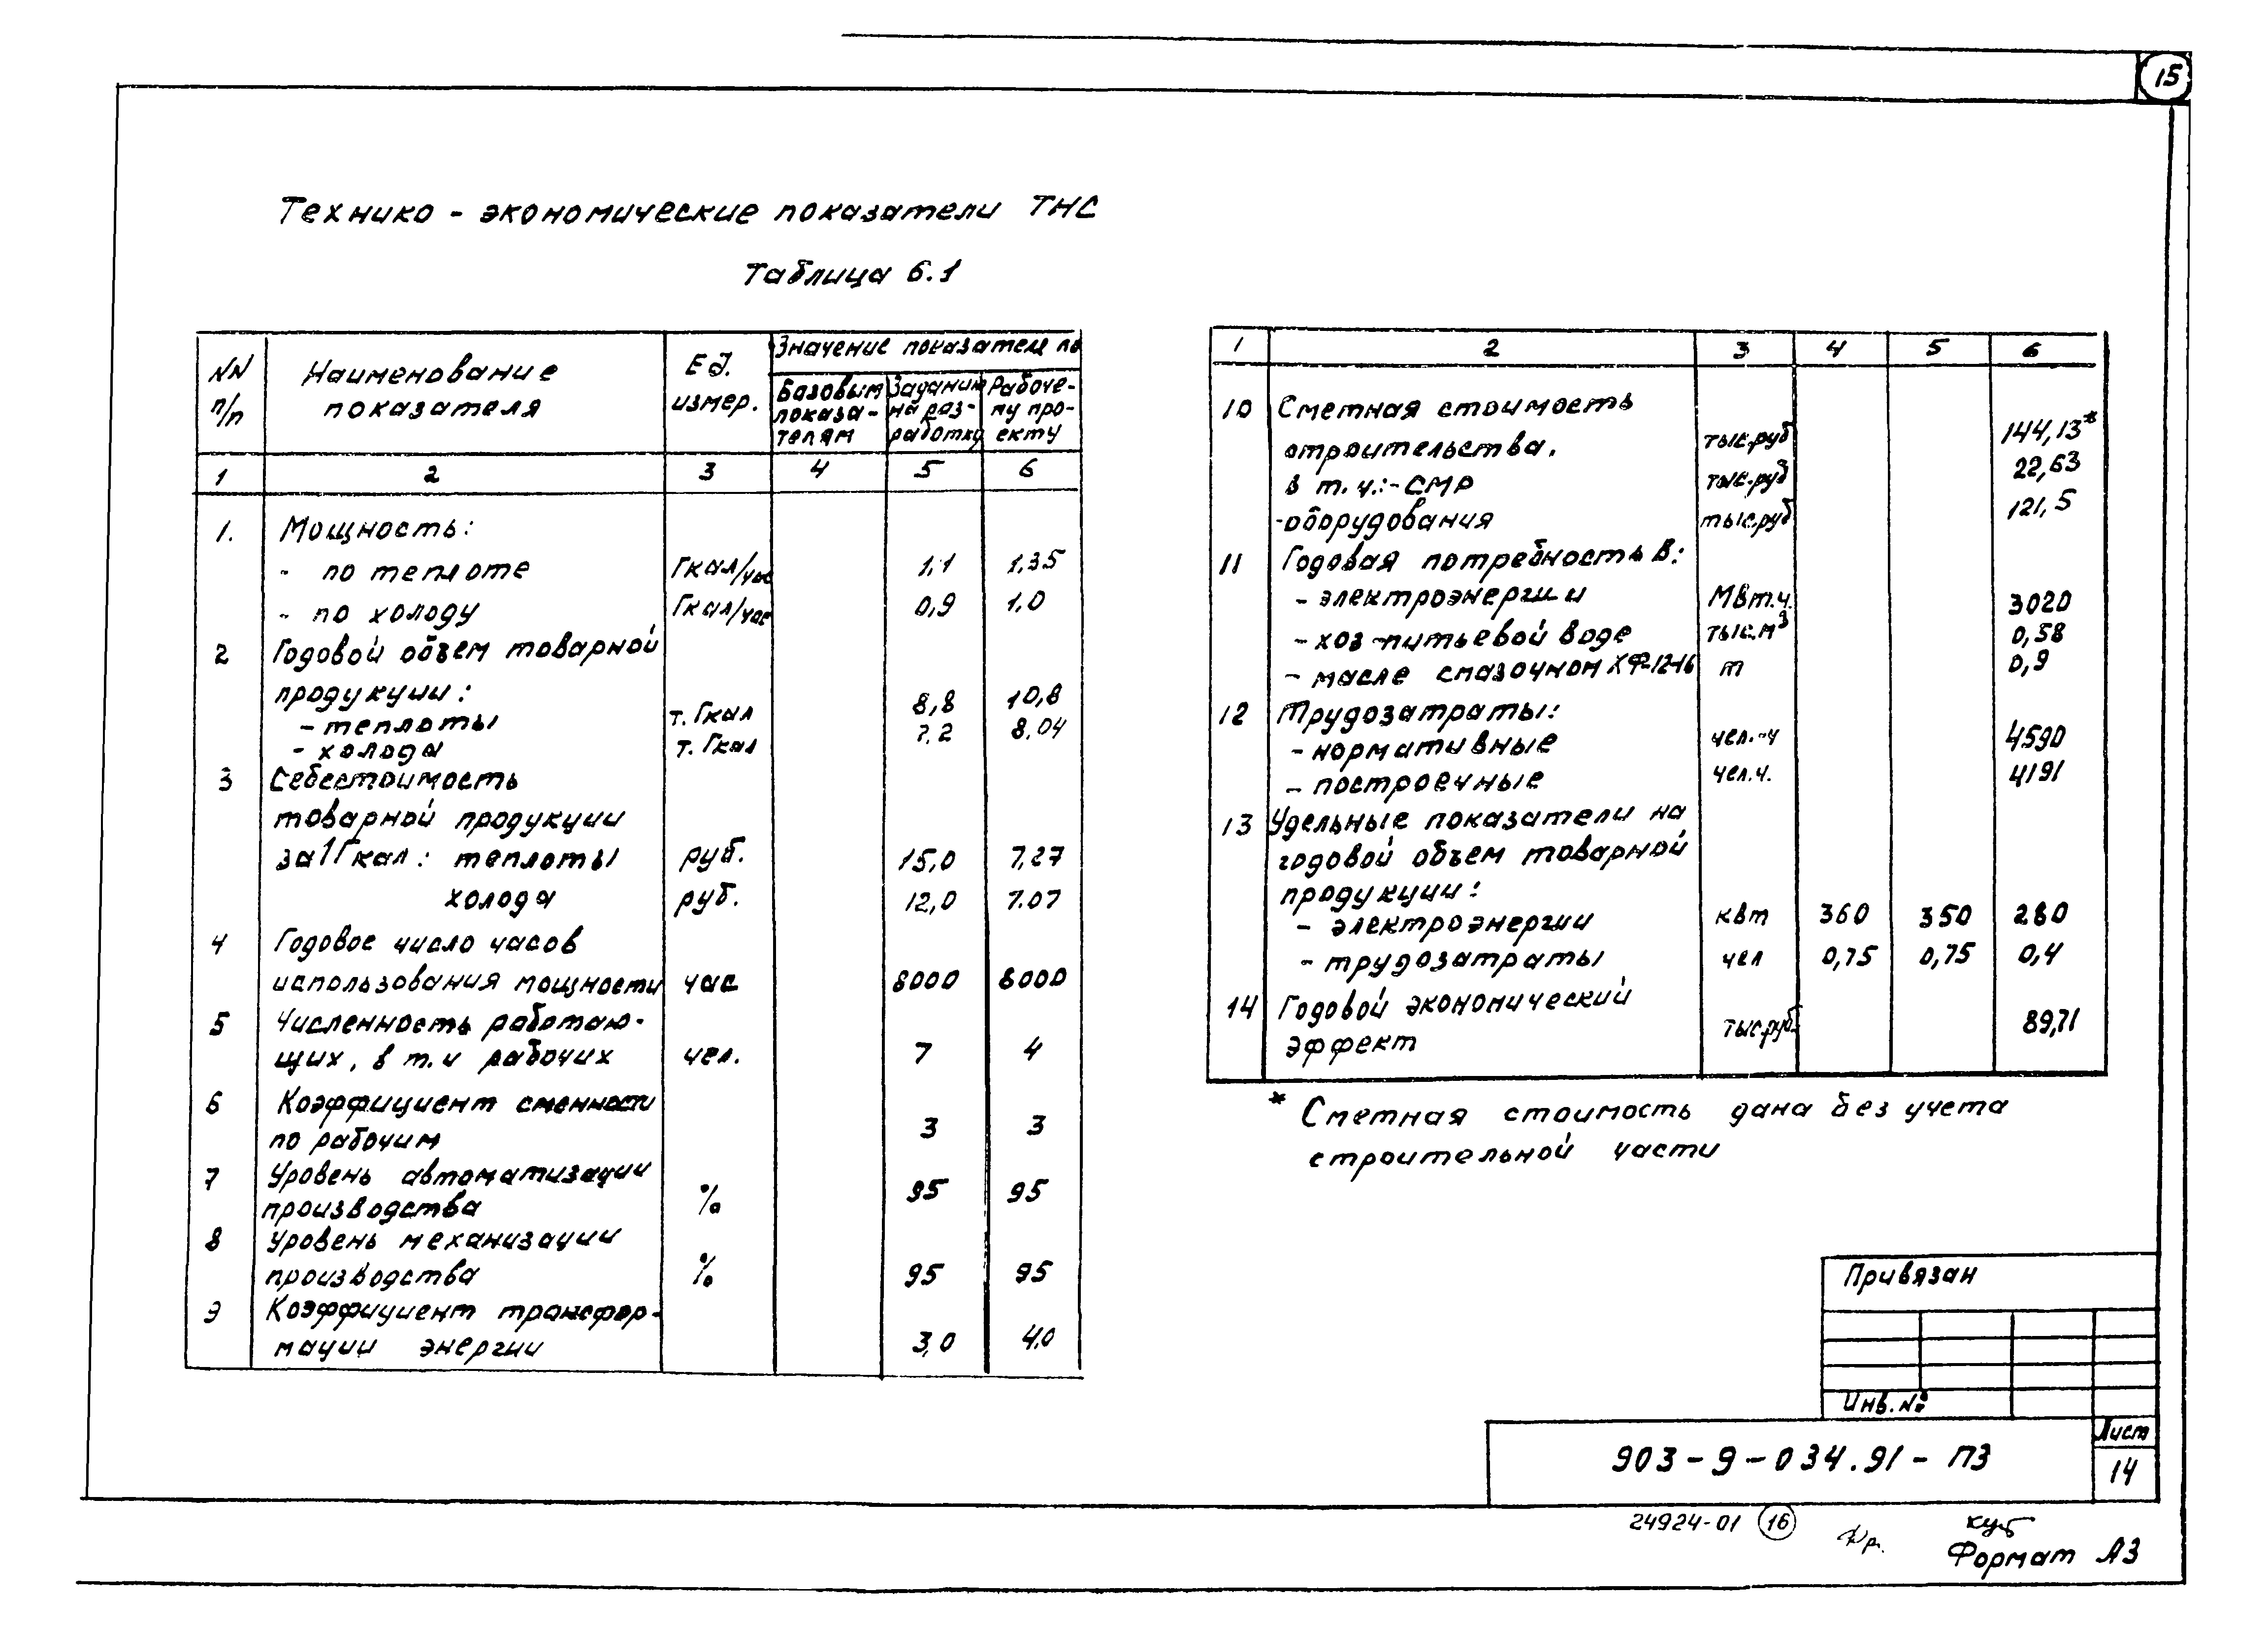 15
Технико - экономические показатели ТНС
Таблица 6.1
NN п/п | Наименование показателя | Ед. измер. | Значение показателя по
Базовым показа-телям | Заданию на раз-работку | Рабоче-му про-екту
1 | 2 | 3 | 4 | 5 | 6
1. Мощность:
- по теплоте Гкал/час 1,1 1,35
- по холоду Гкал/час 0,9 1,0
2 Годовой объем товарной
продукции:
- теплоты т. Гкал 8,8 10,8
- холода т. Гкал 7.2 8,04
3 Себестоимость
товарной продукции
за 1 Гкал: теплоты руб. 15,0 7,27
холода руб. 12,0 7.07
4 Годовое число часов
использования мощности час 8000 8000
5 Численность работаю-
щих, в т.ч рабочих чел. 7 4
6 Коэффициент сменности
по рабочим 3 3
7 Уровень автоматизации
производства % 95 95
8 Уровень механизации
производства % 95 95
9 Коэффициент трансфор-
мации энергии 3,0 4,0
1 | 2 | 3 | 4 | 5 | 6
10 Сметная стоимость
строительства, тыс.руб 144,13*
в т.ч.:-СМР тыс.руб 22,63
-оборудования тыс.руб 121,5
11 Годовая потребность в:
- электроэнергии МВт.ч. 3020
- хоз-питьевой воде тыс.м³ 0,58
- масле смазочном ХФ-12-16 т 0,9
12 Трудозатраты:
- нормативные чел.-ч 4590
- построечные чел.ч. 4191
13 Удельные показатели на
годовой объем товарной
продукции:
- электроэнергии квт 360 350 280
- трудозатраты чел 0,75 0,75 0,4
14 Годовой экономический
эффект тыс.руб. 89,71
* Сметная стоимость дана без учета
строительной части
Привязан
Инв.№
903-9-034.91-ПЗ
Лист
14
24924-01 16
Формат А3